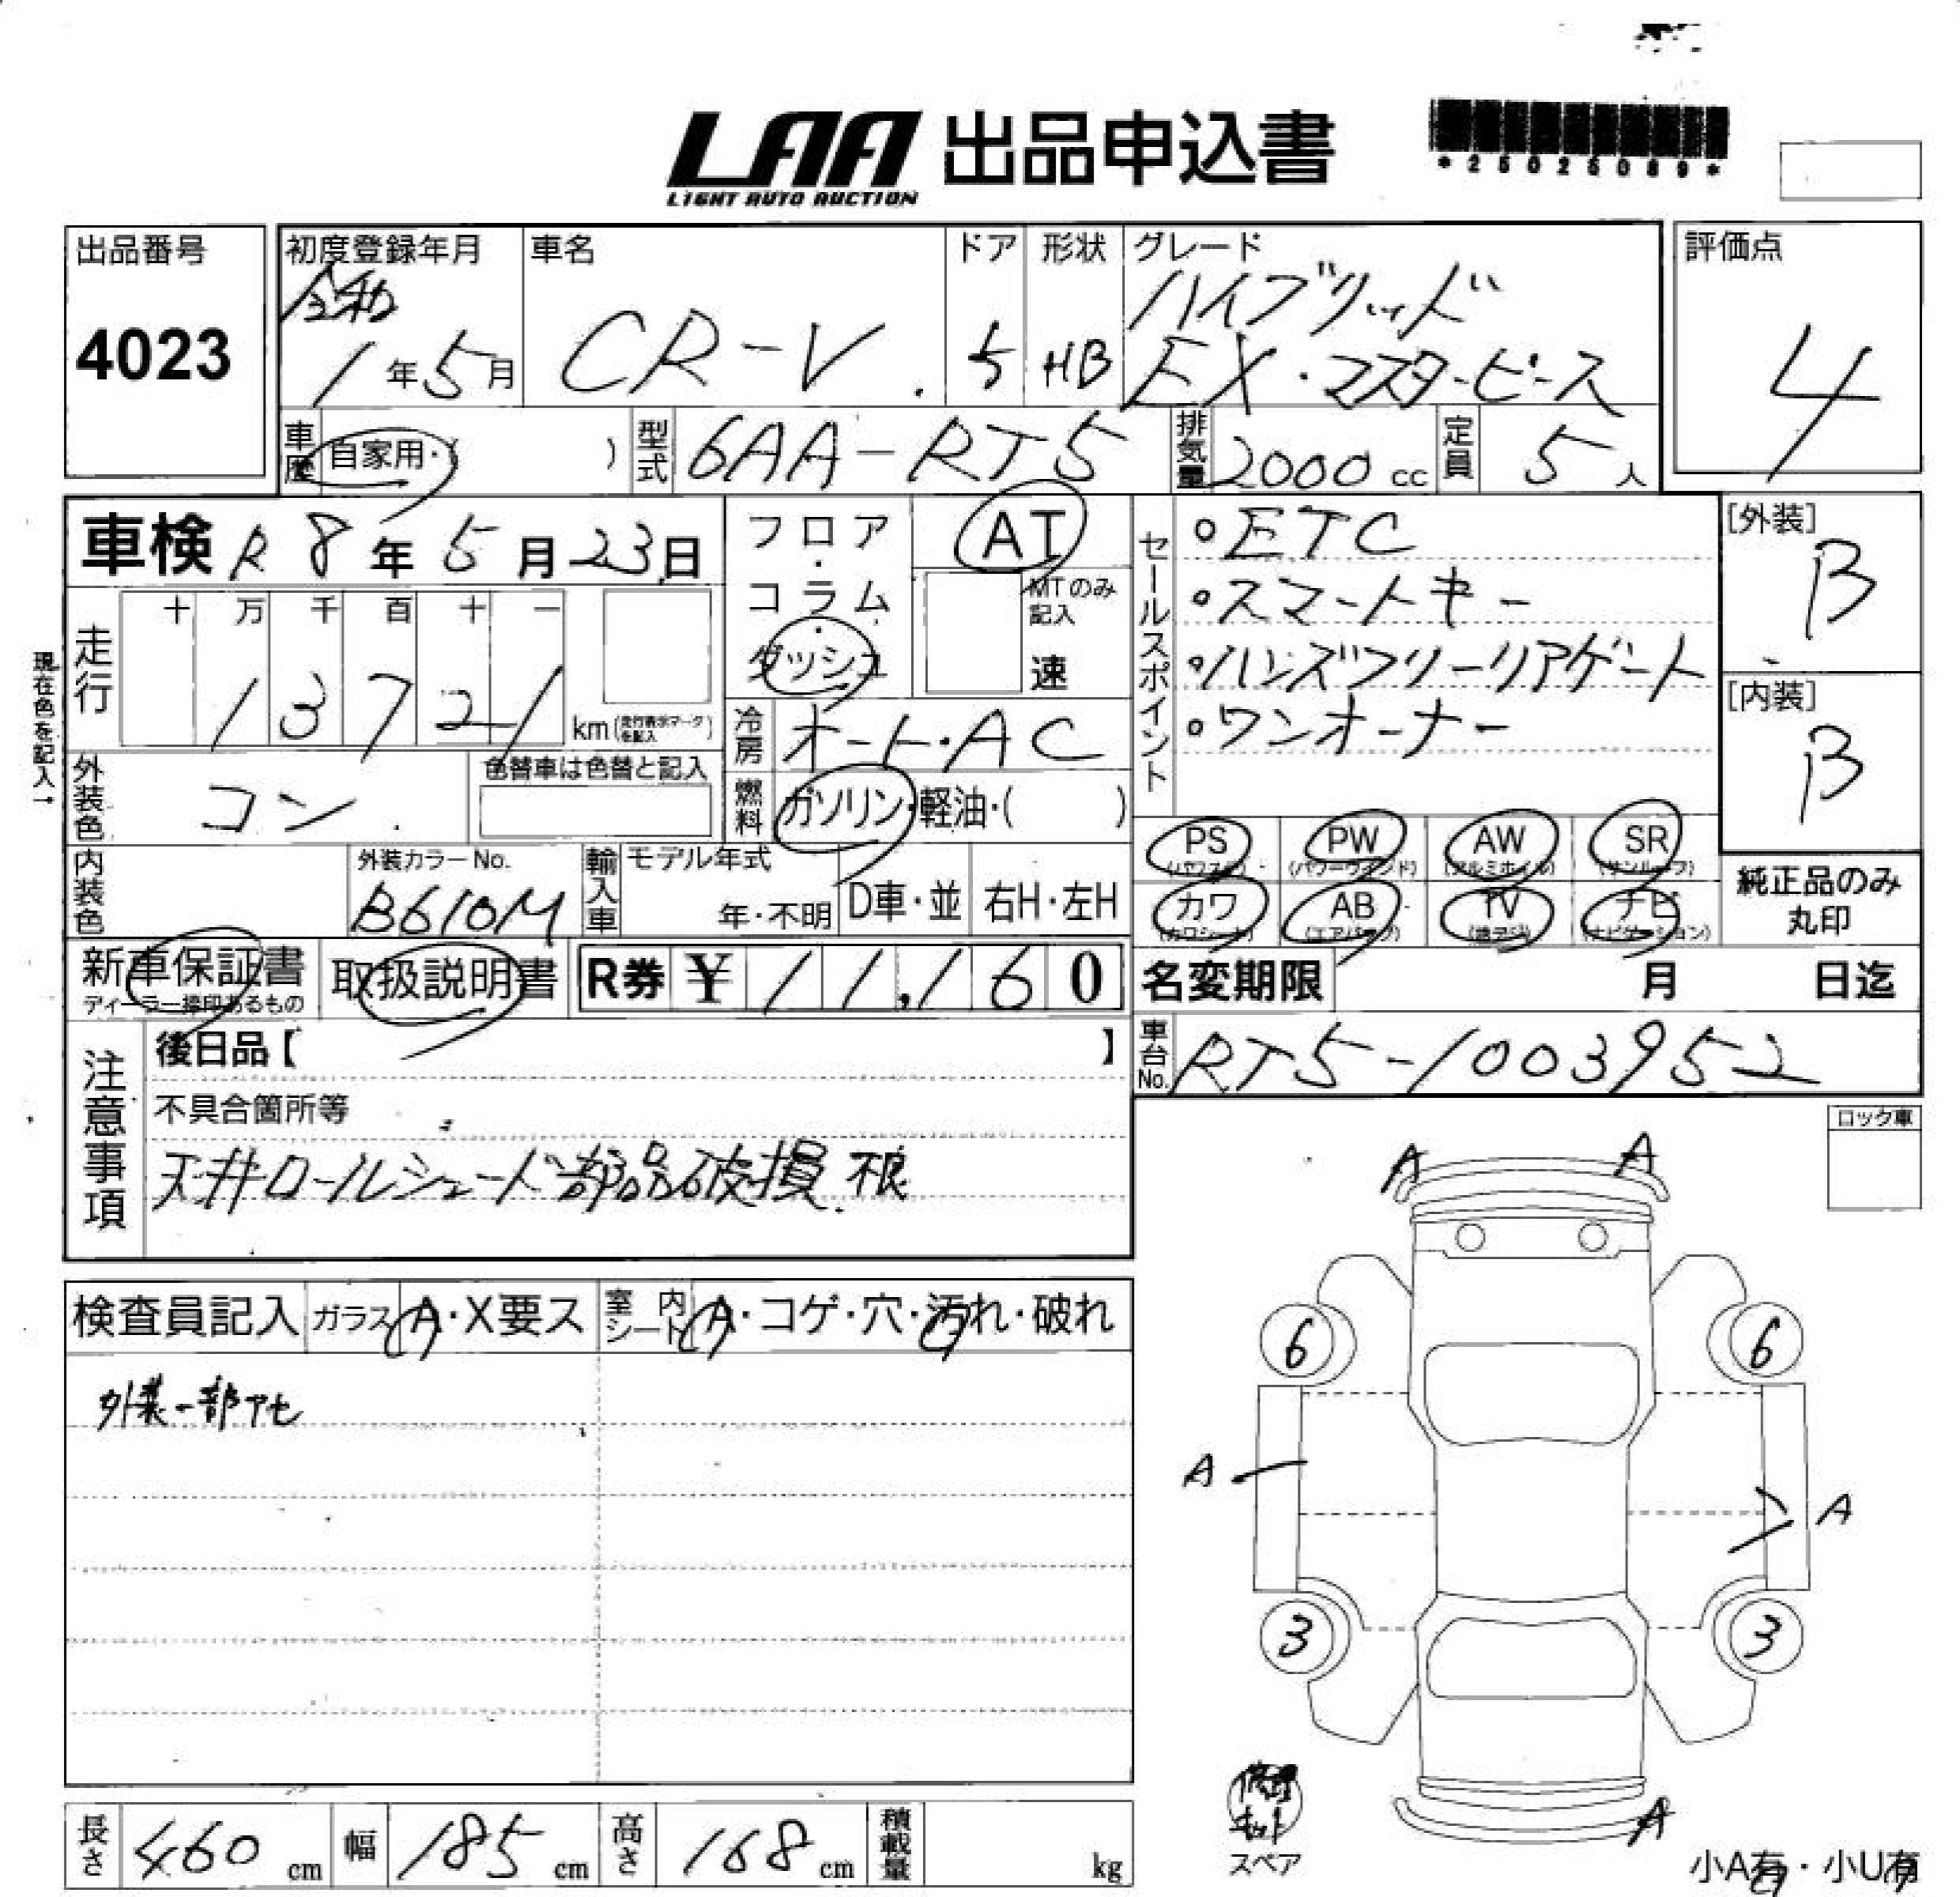 LAA 出品申込書
LIGHT AUTO AUCTION
*25025089*
出品番号
4023
初度登録年月
令和
1年5月
車名
CR-V
ドア
5
形状
HB
グレード
ハイブリッド
EX・マスターピース
評価点
4
車歴
自家用・( )
型式
6AA-RT5
排気量
2000cc
定員
5人
車検 R8年5月23日
フロア・コラム・ダッシュ
AT
MTのみ記入
速
セールスポイント
○ETC
○スマートキー
○ハンズフリーリアゲート
○ワンオーナー
[外装]
B
[内装]
B
現在色を記入→
走行
十 万 千 百 十 一
1 3 7 2 1 km(走行表示マークを記入)
冷房
オート・AC
外装色
コン
色替車は色替と記入
燃料
ガソリン・軽油・( )
PS
PW (パワーウインド)
AW (アルミホイル)
SR (サンルーフ)
カワ (カワシート)
AB (エアバック)
TV (地デジ)
ナビ (ナビゲーション)
純正品のみ
丸印
内装色
外装カラーNo.
B610M
輸入車
モデル年式
年・不明
D車・並
右H・左H
新車保証書
ディーラー捺印あるもの
取扱説明書
R券 ¥11,160
名変期限 月 日迄
車台No.
RT5-1003952
注意事項
後日品【 】
不具合箇所等
天井ロールシェード部品破損 不良
ロック車
検査員記入
ガラス A・X要ス
室内シート A・コゲ・穴・汚れ・破れ
外装一部アセ
A A
6 6
A A
3 3
A
修理キット
スペア
小A有・小U有
長さ 460cm
幅 185cm
高さ 168cm
積載量 kg